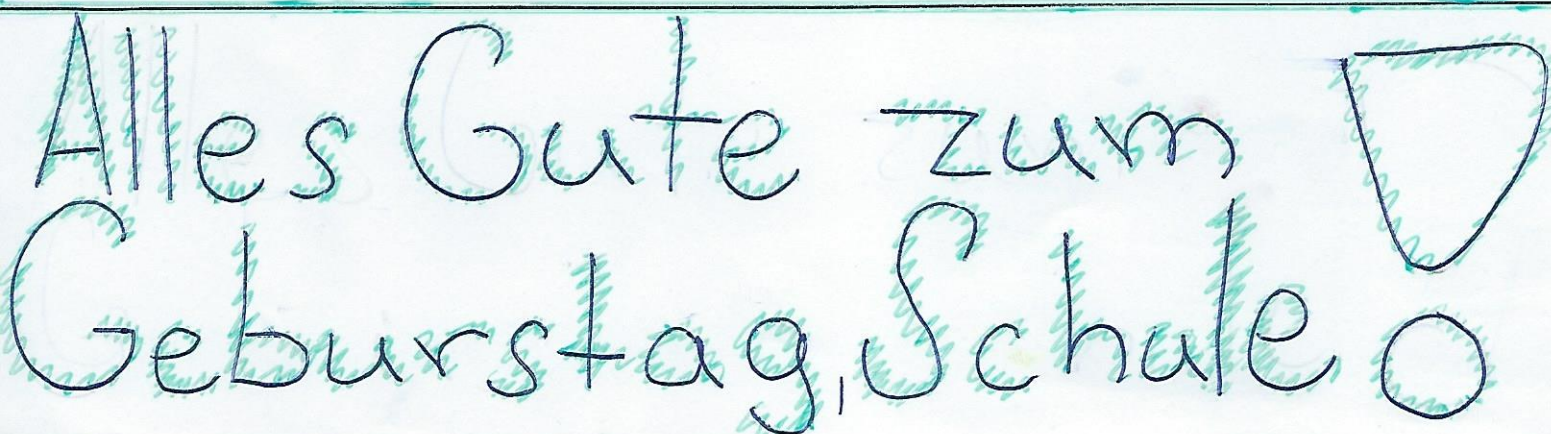 Alles Gute zum
Geburstag, Schule!